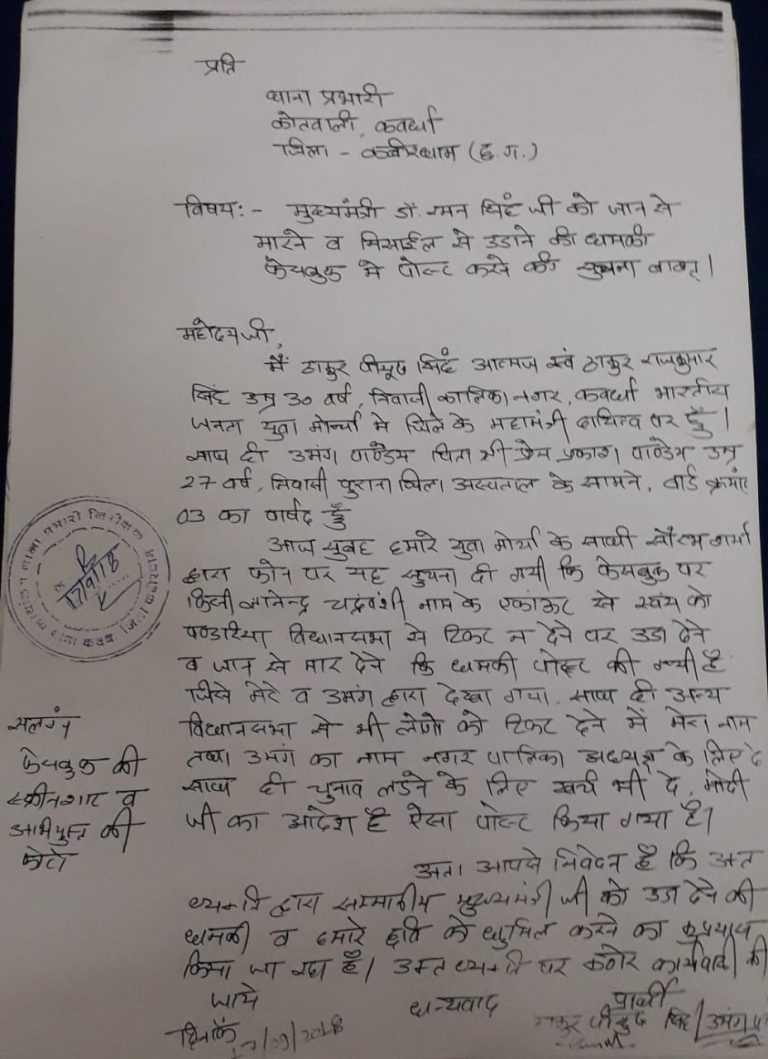 प्रति
थाना प्रभारी
कोतवाली, कवर्धा
जिला - कबीरधाम (छ.ग.)
विषय:- मुख्यमंत्री डॉ. रमन सिंह जी को जान से
मारने व मिसाईल से उडाने की धमकी
फेसबुक मे पोस्ट करने की सुचना बाबत्।
महोदय जी,
मैं ठाकुर पीयूष सिंह आत्मज स्व ठाकुर राजकुमार
सिंह उम्र 30 वर्ष, निवासी कालिका नगर, कवर्धा भारतीय
जनता युवा मोर्चा मे जिले के महामंत्री दायित्व पर हुँ।
साथ ही उमंग पाण्डेय पिता श्री प्रेम प्रकाश पाण्डेय उम्र
27 वर्ष, निवासी पुराना जिला अस्पताल के सामने, वार्ड क्रमांक
03 का पार्षद हुँ
आज सुबह हमारे युवा मोर्चा के साथी सौरभ शर्मा
द्वारा फोन पर यह सुचना दी गयी कि फेसबुक पर
किसी ज्ञानेन्द्र चद्रवंशी नाम के एकाऊंट से स्वयं को
पण्डरिया विधानसभा से टिकट न देने पर उडा देने
व जान से मार देने कि धमकी पोस्ट की गयी है
जिसे मेरे व उमंग द्वारा देखा गया, साथ ही अन्य
विधानसभा से भी लोगो को टिकट देने में मेरा नाम
तथा उमंग का नाम नगर पालिका अध्यक्ष के लिए दे
साथ ही चुनाव लडने के लिए खर्च भी दे, मोदी
जी का आदेश है ऐसा पोस्ट किया गया है।
अतः आपसे निवेदन है कि उक्त
व्यक्ति द्वारा सम्मानीय मुख्यमंत्री जी को उडा देने की
धमकी व हमारे छवि को धुमिल करने का कुप्रयास
किया जा रहा है। उक्त व्यक्ति पर कठोर कार्यवाही की
जाये
धन्यवाद
प्रार्थी
दिनाँक /09/2018
ठाकुर पीयुष सिंह / उमंग
सलग्न
फेसबुक की
स्क्रीनशाट व
अभियुक्त की
फोटो